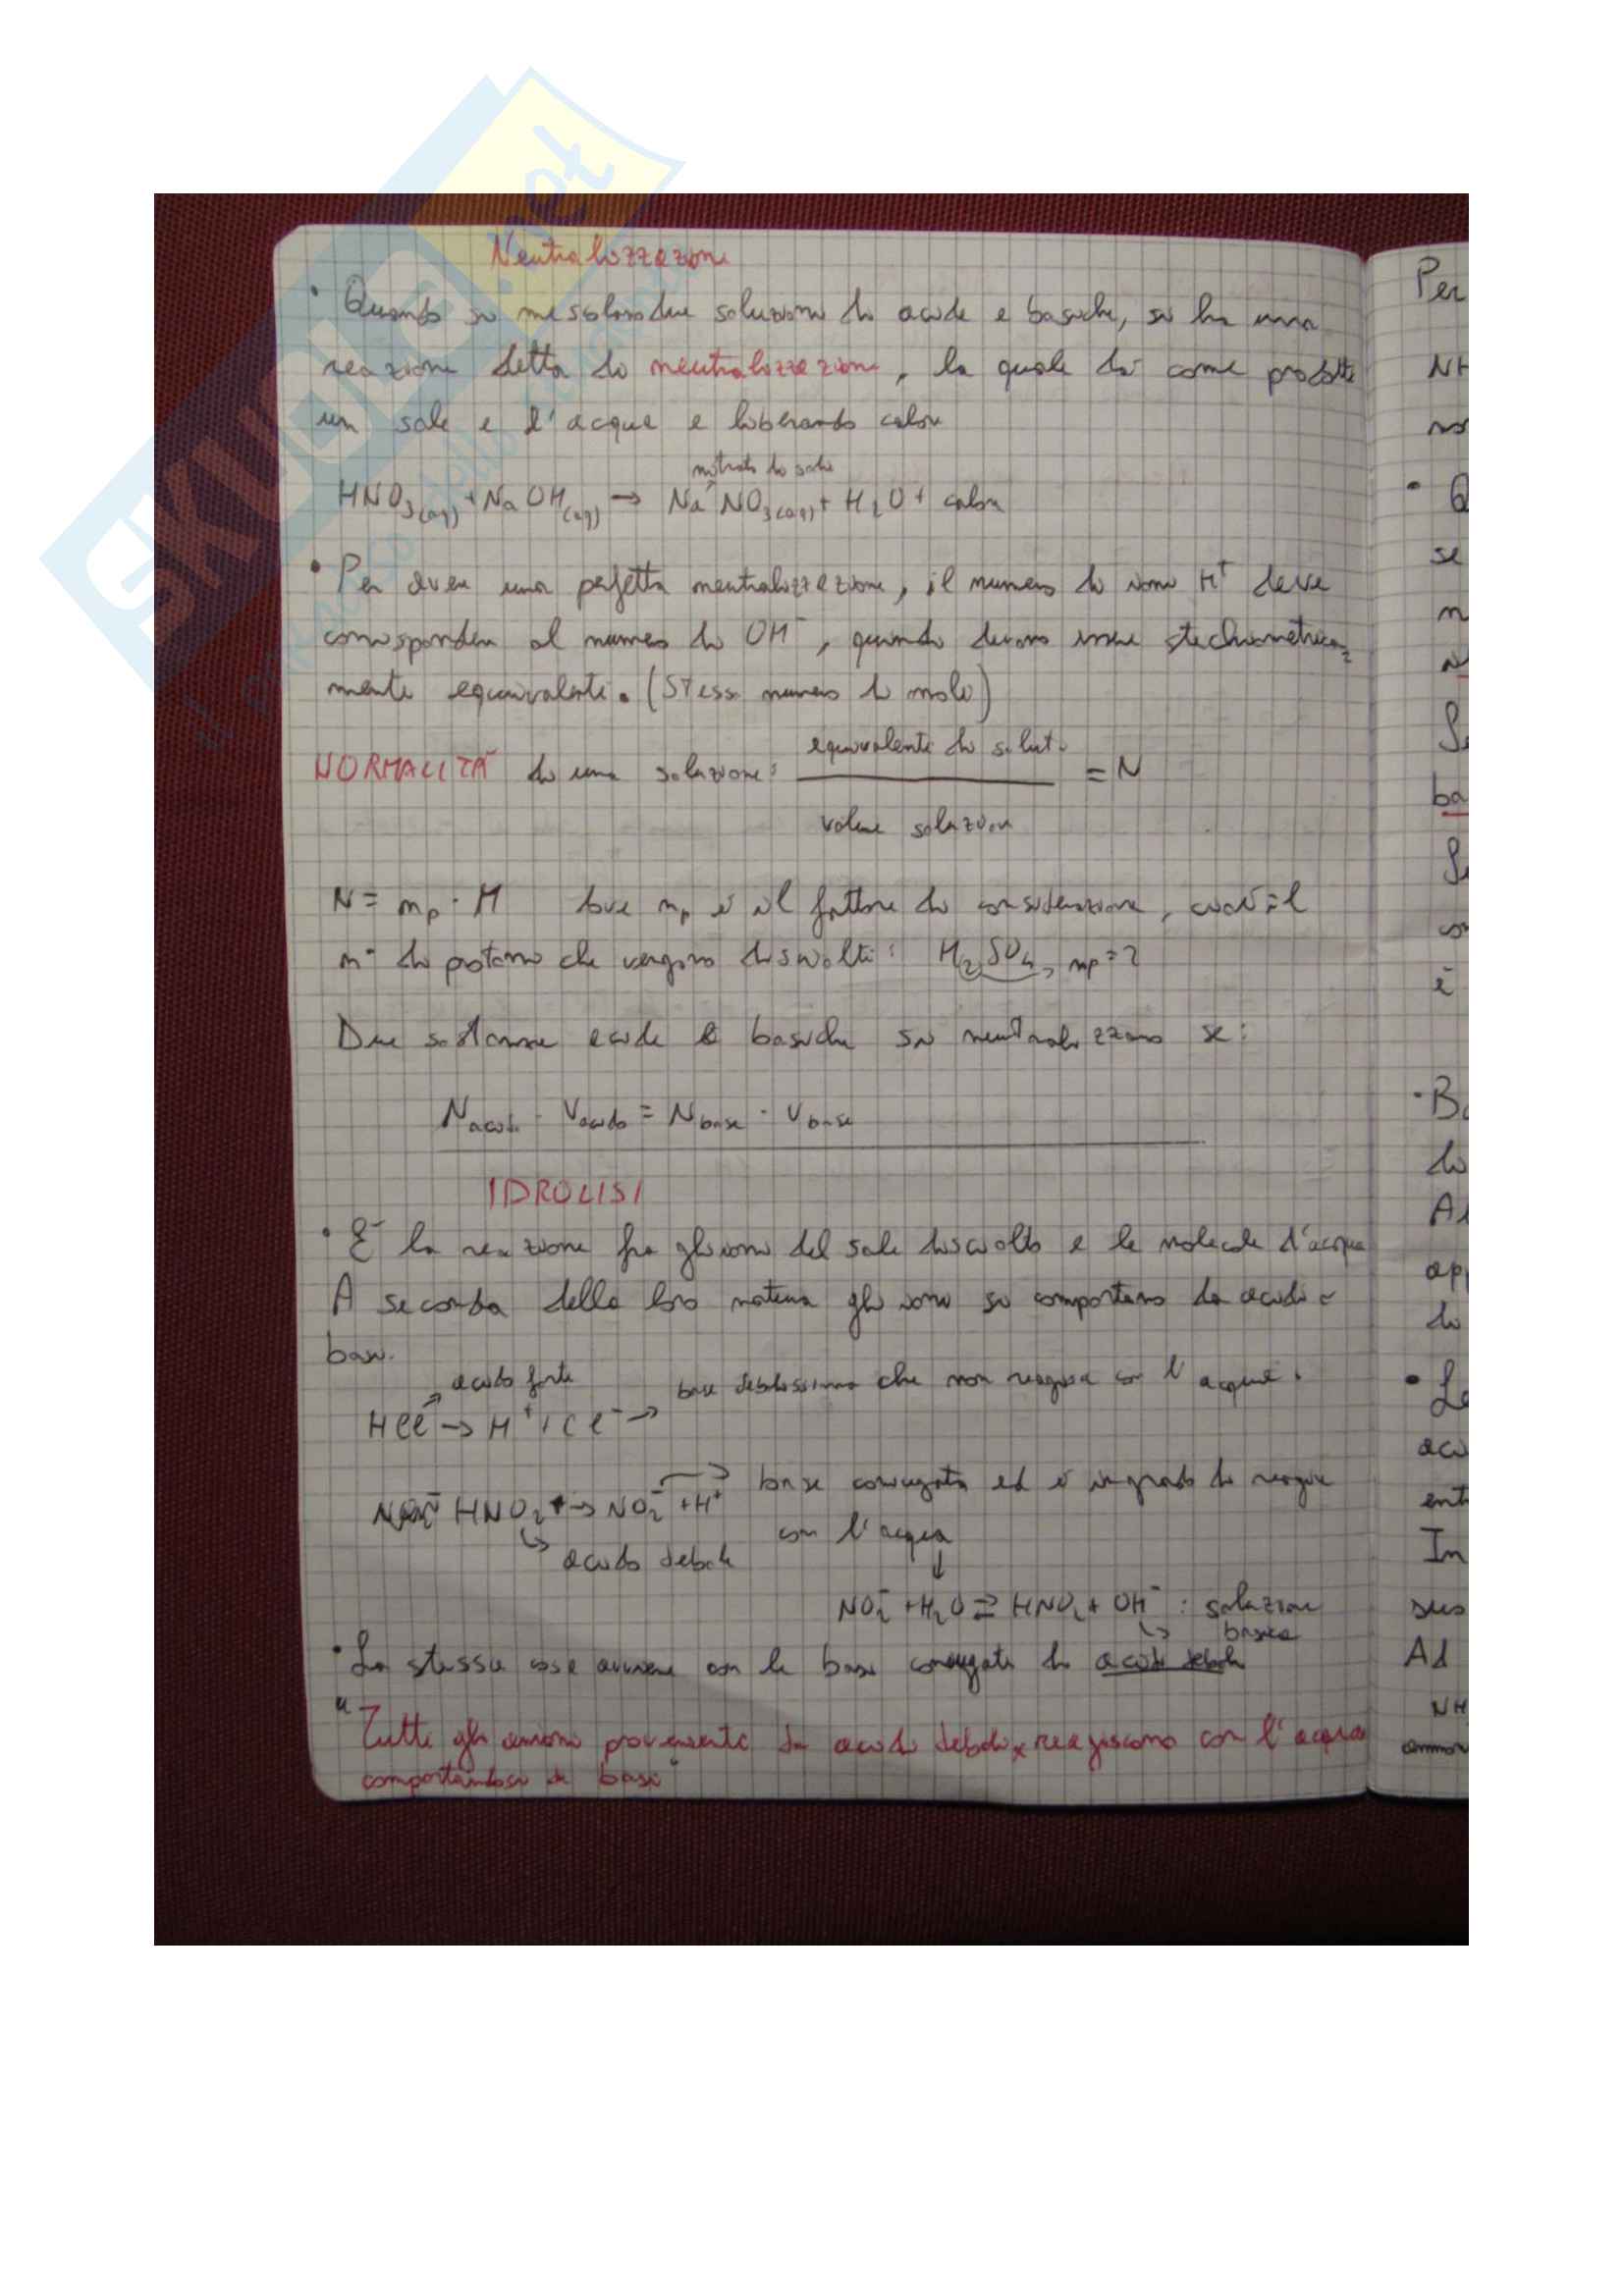 Neutralizzazione
• Quando si mescolano due soluzioni di acide e basiche, si ha una
reazione detta di neutralizzazione, la quale dà come prodotti
un sale e l'acqua e liberando calore
nitrato di sodio
HNO3(aq) + NaOH(aq) → Na+NO3(aq) + H2O + calore
• Per avere una perfetta neutralizzazione, il numero di ioni H+ deve
corrispondere al numero di OH-, quindi devono essere stechiometrica
mente equivalenti. (Stesso numero di moli)
NORMALITÀ di una soluzione: equivalenti di soluto = N
volume soluzione
N = mp · M dove mp è il fattore di considerazione, cioè il
n° di protoni che vengono disciolti: H2SO4, mp = 2
Due sostanze acide e basiche si neutralizzano se:
Nacido · Vacido = Nbase · Vbase
IDROLISI
• È la reazione fra gli ioni del sale disciolto e le molecole d'acqua
A seconda della loro natura gli ioni si comportano da acidi o
basi.
acido forte
HCl → H+ + Cl- → base debolissima che non reagisce con l'acqua.
HNO2 → NO2- + H+ → base coniugata ed è in grado di reagire
con l'acqua
acido debole
NO2- + H2O ⇄ HNO2 + OH- : soluzione
basica
• La stessa cosa avviene con le basi coniugate di acidi deboli
"Tutti gli anioni provenienti da acidi deboli reagiscono con l'acqua
comportandosi da basi"
Per
NH
se
ba
è
do
app
do
ent
In
Ad
NH
SKUOLA.net